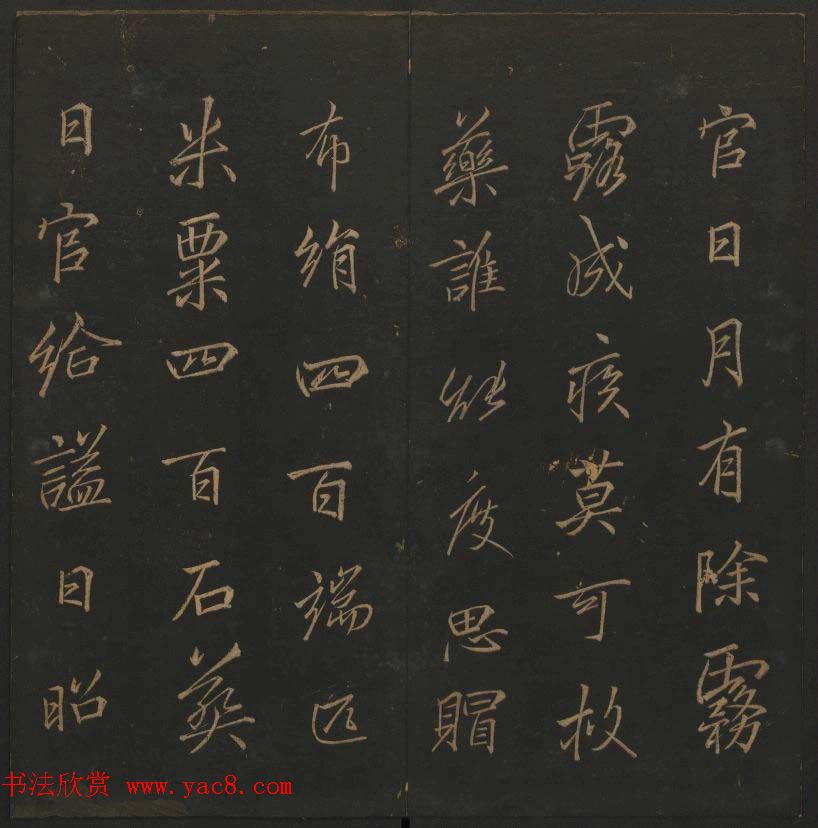 官日月有除霧
露成疾莫可救
藥誰能度思賵
布絹四百端疋
米粟四百石葬
日官給謚曰昭
书法欣赏 www.yac8.com